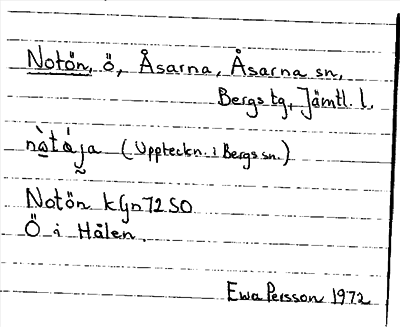 Notön, ö, Åsarna, Åsarna sn,
Bergs tg, Jämtl. l.
nò̱tá̱ja (Uppteckn. i Bergs sn.)
Notön k Gn72 SO
Ö i Hålen.
Ewa Persson 1972